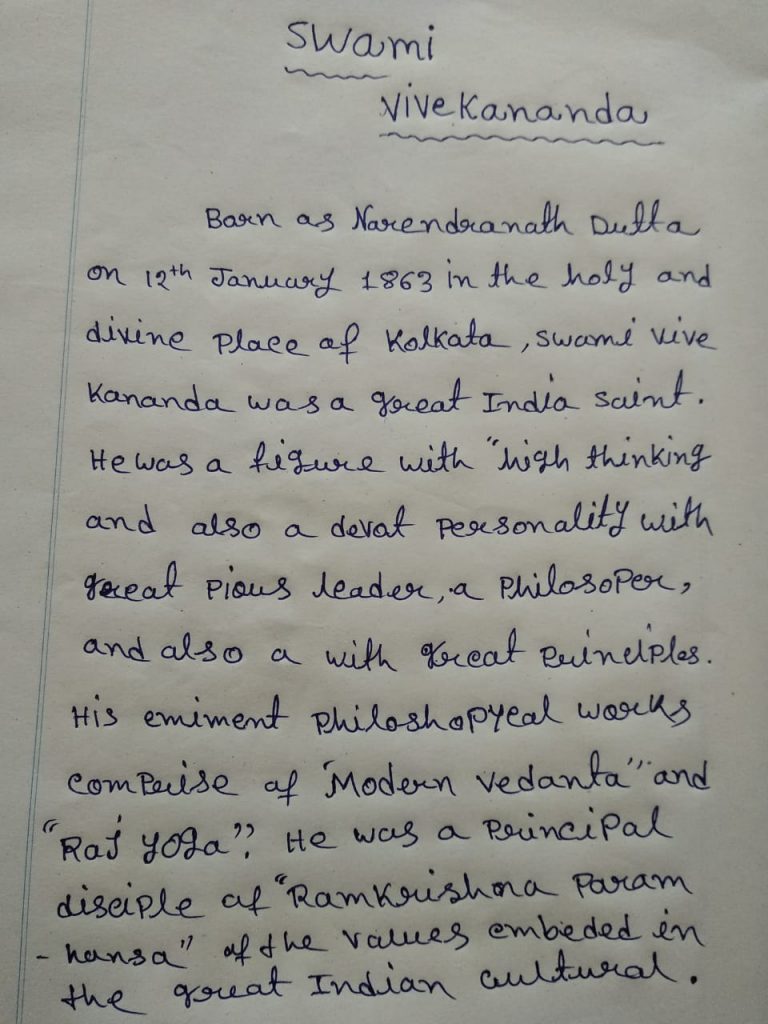 Swami
Vivekananda
Born as Narendranath Dutta
on 12th January 1863 in the holy and
divine place of Kolkata, swami vive
kananda was a great India saint.
He was a figure with "high thinking
and also a devot personality with
great pious leader, a philosoper,
and also a with great principles.
His emiment philoshopycal works
comprise of "Modern vedanta" and
"Raj yoga". He was a principal
disciple of "Ramkrishna Param
-hansa" of the values embeded in
the great Indian cultural.